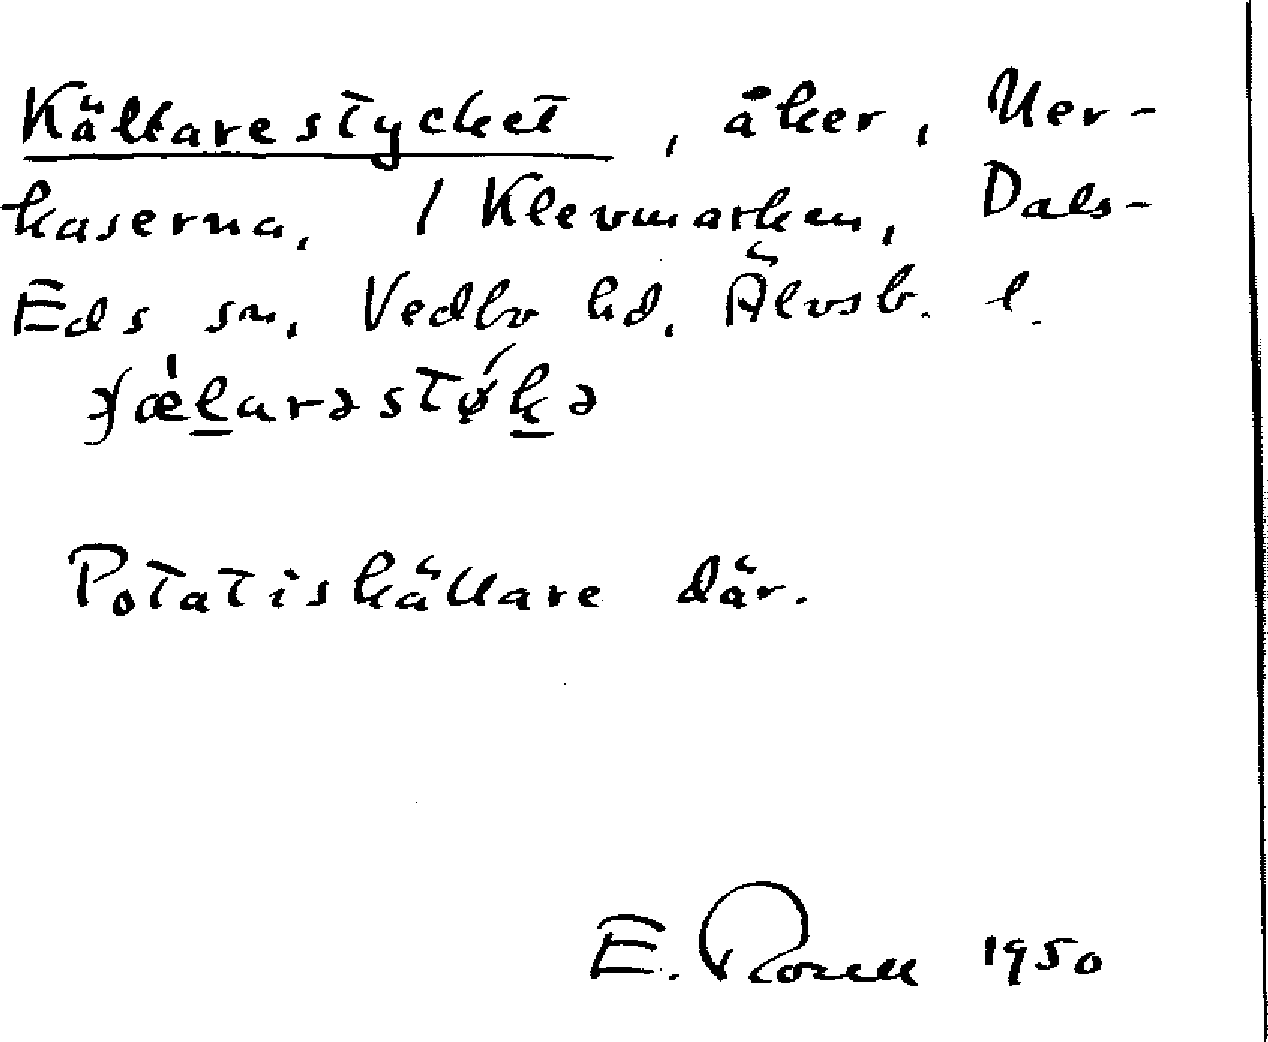 Källarestycket, åker, Uer-
kaserna, / Klevmarken, Dals-
Eds sn, Vedbo hd, Älvsb. l.
Potatiskällare där.
E. Rosell 1950